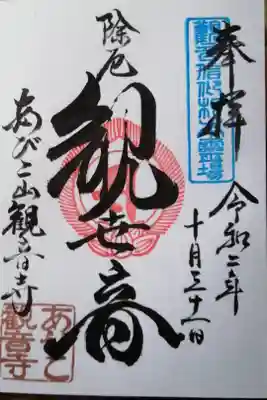 奉拝
令和二年
十月三十一日
除厄
観世音
あびこ山観音寺
あびこ
観音寺